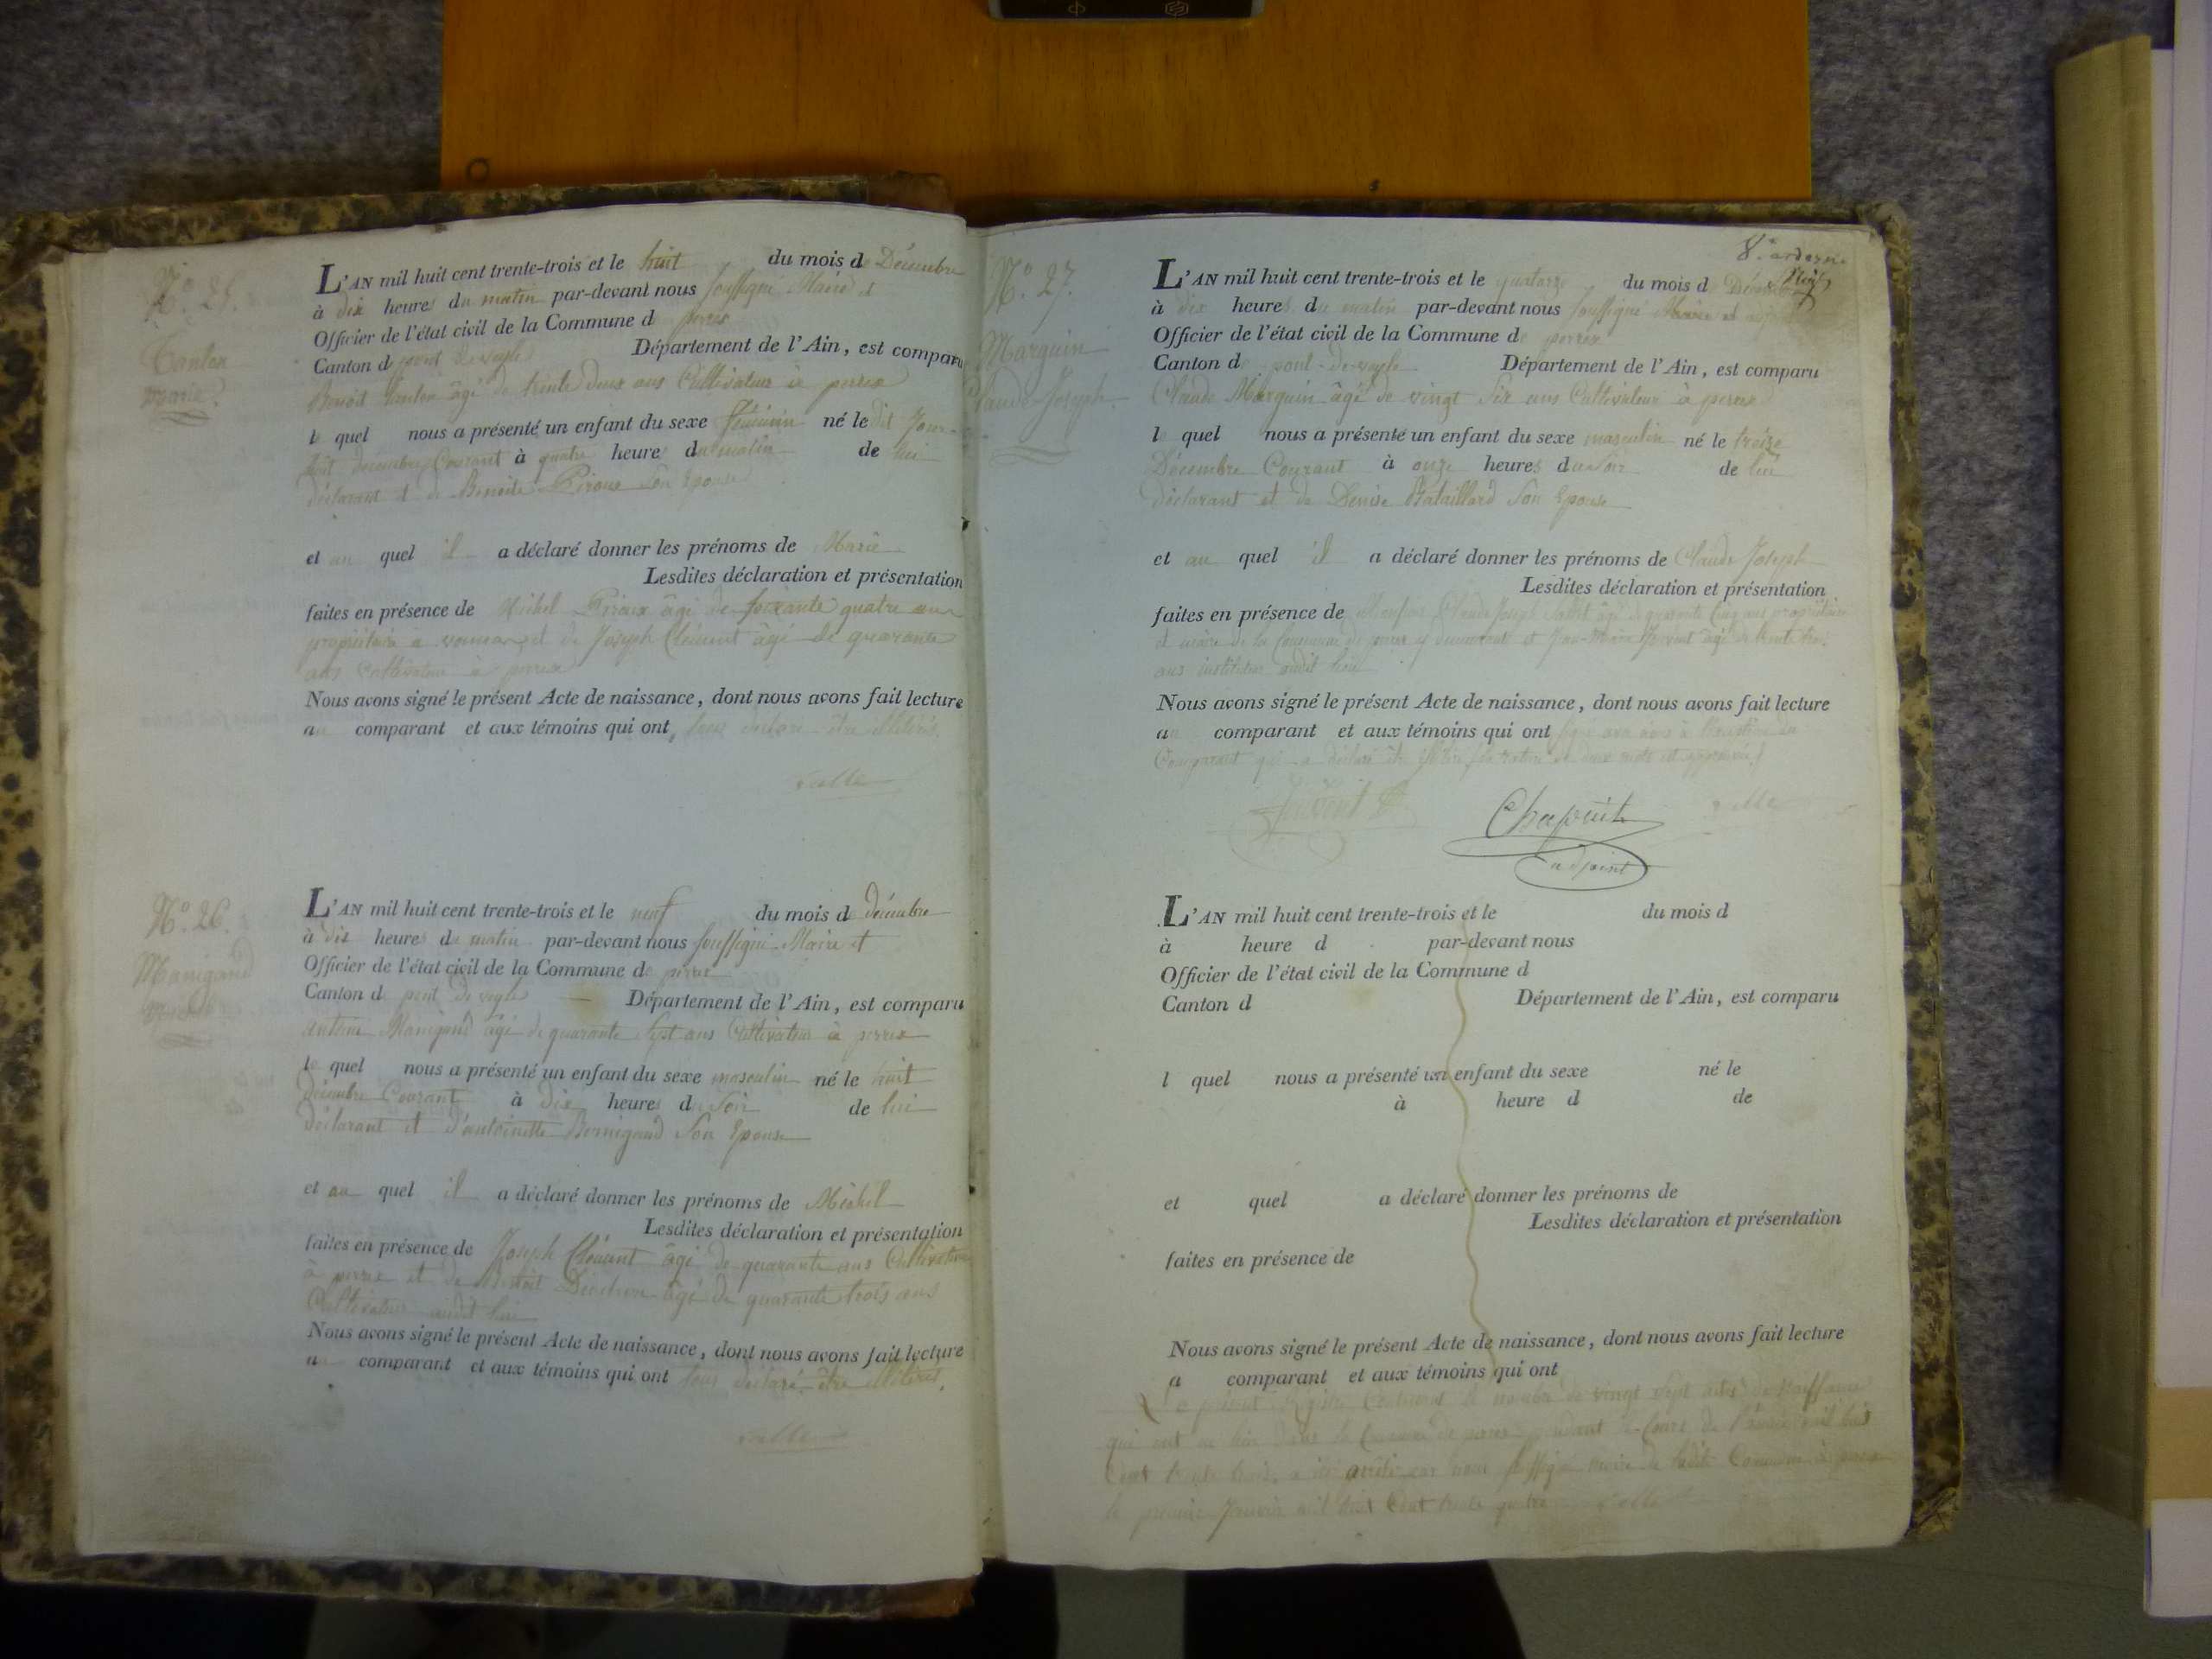 N.º 25.
Tonlon
Marie.
L'AN mil huit cent trente-trois et le huit du mois de Décembre
à dix heures du matin par-devant nous soussigné Maire et
Officier de l'état civil de la Commune de perrex
Canton de pont de veyle Département de l'Ain, est comparu
Benoit âgé de trente deux ans Cultivateur à perrex
le quel nous a présenté un enfant du sexe féminin né le dit jour
huit décembre Courant à quatre heures du matin de lui
déclarant et de Benoite Son Epouse
et au quel il a déclaré donner les prénoms de Marie
Lesdites déclaration et présentation
faites en présence de Michel âgé de soixante quatre ans
propriétaire a et de Joseph Clément âgé de quarante
ans Cultivateur à perrex
Nous avons signé le présent Acte de naissance, dont nous avons fait lecture
au comparant et aux témoins qui ont tous déclaré être illitérés.
N.º 26.
Manigand
Michel
L'AN mil huit cent trente-trois et le neuf du mois de décembre
à dix heures du matin par-devant nous soussigné Maire et
Officier de l'état civil de la Commune de perrex
Canton de pont de veyle Département de l'Ain, est comparu
antoine Manigand âgé de quarante sept ans Cultivateur à perrex
le quel nous a présenté un enfant du sexe masculin né le huit
décembre Courant à dix heures du Soir de lui
déclarant et d'antoinette Son Epouse
et au quel il a déclaré donner les prénoms de Michel
Lesdites déclaration et présentation
faites en présence de Joseph Clément âgé de quarante ans Cultivateur
à perrex et de Benoit âgé de quarante trois ans
Cultivateur audit lieu
Nous avons signé le présent Acte de naissance, dont nous avons fait lecture
au comparant et aux témoins qui ont tous déclaré être illitérés.
N.º 27.
Marguin
Claude Joseph.
L'AN mil huit cent trente-trois et le quatorze du mois de Décembre
à dix heures du matin par-devant nous soussigné Maire et
Officier de l'état civil de la Commune de perrex
Canton de pont-de-veyle Département de l'Ain, est comparu
Claude Marguin âgé de vingt Six ans Cultivateur à perrex
le quel nous a présenté un enfant du sexe masculin né le treize
Décembre Courant à onze heures du Soir de lui
déclarant et de Denise Bataillard Son Epouse
et au quel il a déclaré donner les prénoms de Claude Joseph
Lesdites déclaration et présentation
faites en présence de Claude Joseph âgé de quarante Cinq ans propriétaire
et maire de la Commune de perrex y demeurant et Jean-Marie âgé de trente
ans instituteur audit lieu
Nous avons signé le présent Acte de naissance, dont nous avons fait lecture
au comparant et aux témoins qui ont signé avec nous à
Comparant qui a déclaré être
Chapuit
adjoint
L'AN mil huit cent trente-trois et le du mois d
à heure d par-devant nous
Officier de l'état civil de la Commune d
Canton d Département de l'Ain, est comparu
l quel nous a présenté un enfant du sexe né le
à heure d de
et quel a déclaré donner les prénoms de
Lesdites déclaration et présentation
faites en présence de
Nous avons signé le présent Acte de naissance, dont nous avons fait lecture
a comparant et aux témoins qui ont
Le présent Registre Contenant le nombre de vingt sept actes de Naissance
qui ont eu lieu dans la Commune de perrex pendant le Cours de l'année mil huit
Cent trente trois, a été arrêté par nous soussigné maire de ladite Commune à perrex
le premier Janvier mil huit Cent trente quatre